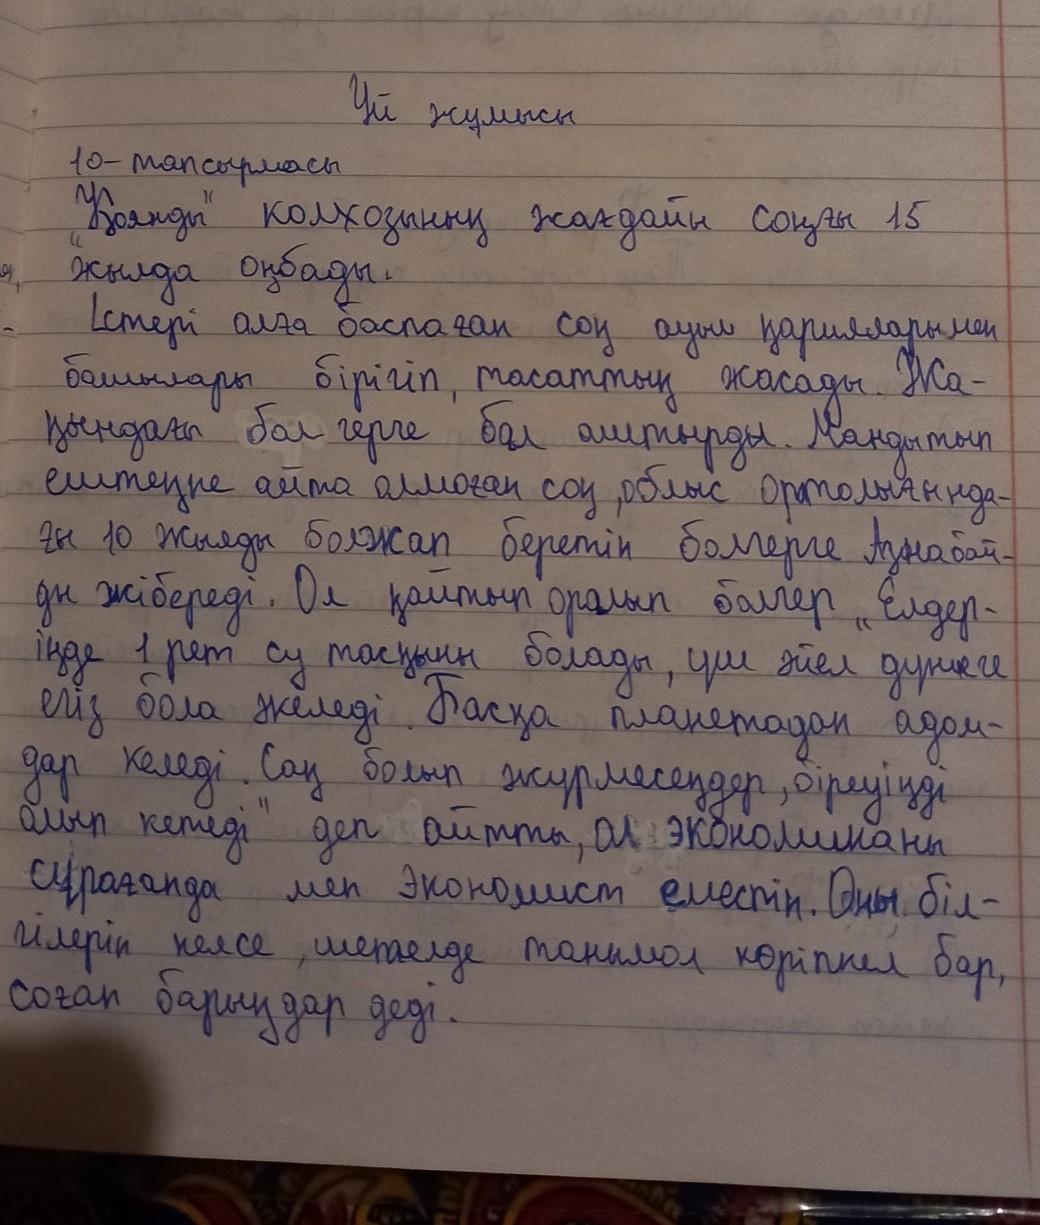 Үй жұмысы
10-тапсырмасы
„Қоянды" колхозының жағдайы соңғы 15
жылда оңбады.
Істері алға баспаған соң ауыл қарияларымен
башылары бірігіп, тасаттық жасады. Жа-
қындағы балгерге бал аштырды. Мандытып
ештеңке айта алмаған соң, облыс орталығында-
ғы 10 жылды болжап беретін балгерге Азнабай-
ды жібереді. Ол қайтып оралып балгер „Елдер-
іңде 1 рет су тасқыны болады, үш әйел дүниеге
егіз бала әкеледі. Басқа планетадан адам-
дар келеді. Сақ болып жүрмесеңдер, біреуіңді
алып кетеді" деп айтты, ал экономиканы
сұрағанда мен экономист емеспін. Оны біл-
гілерің келсе, шетелде танымал көріпкел бар,
соған барыңдар деді.